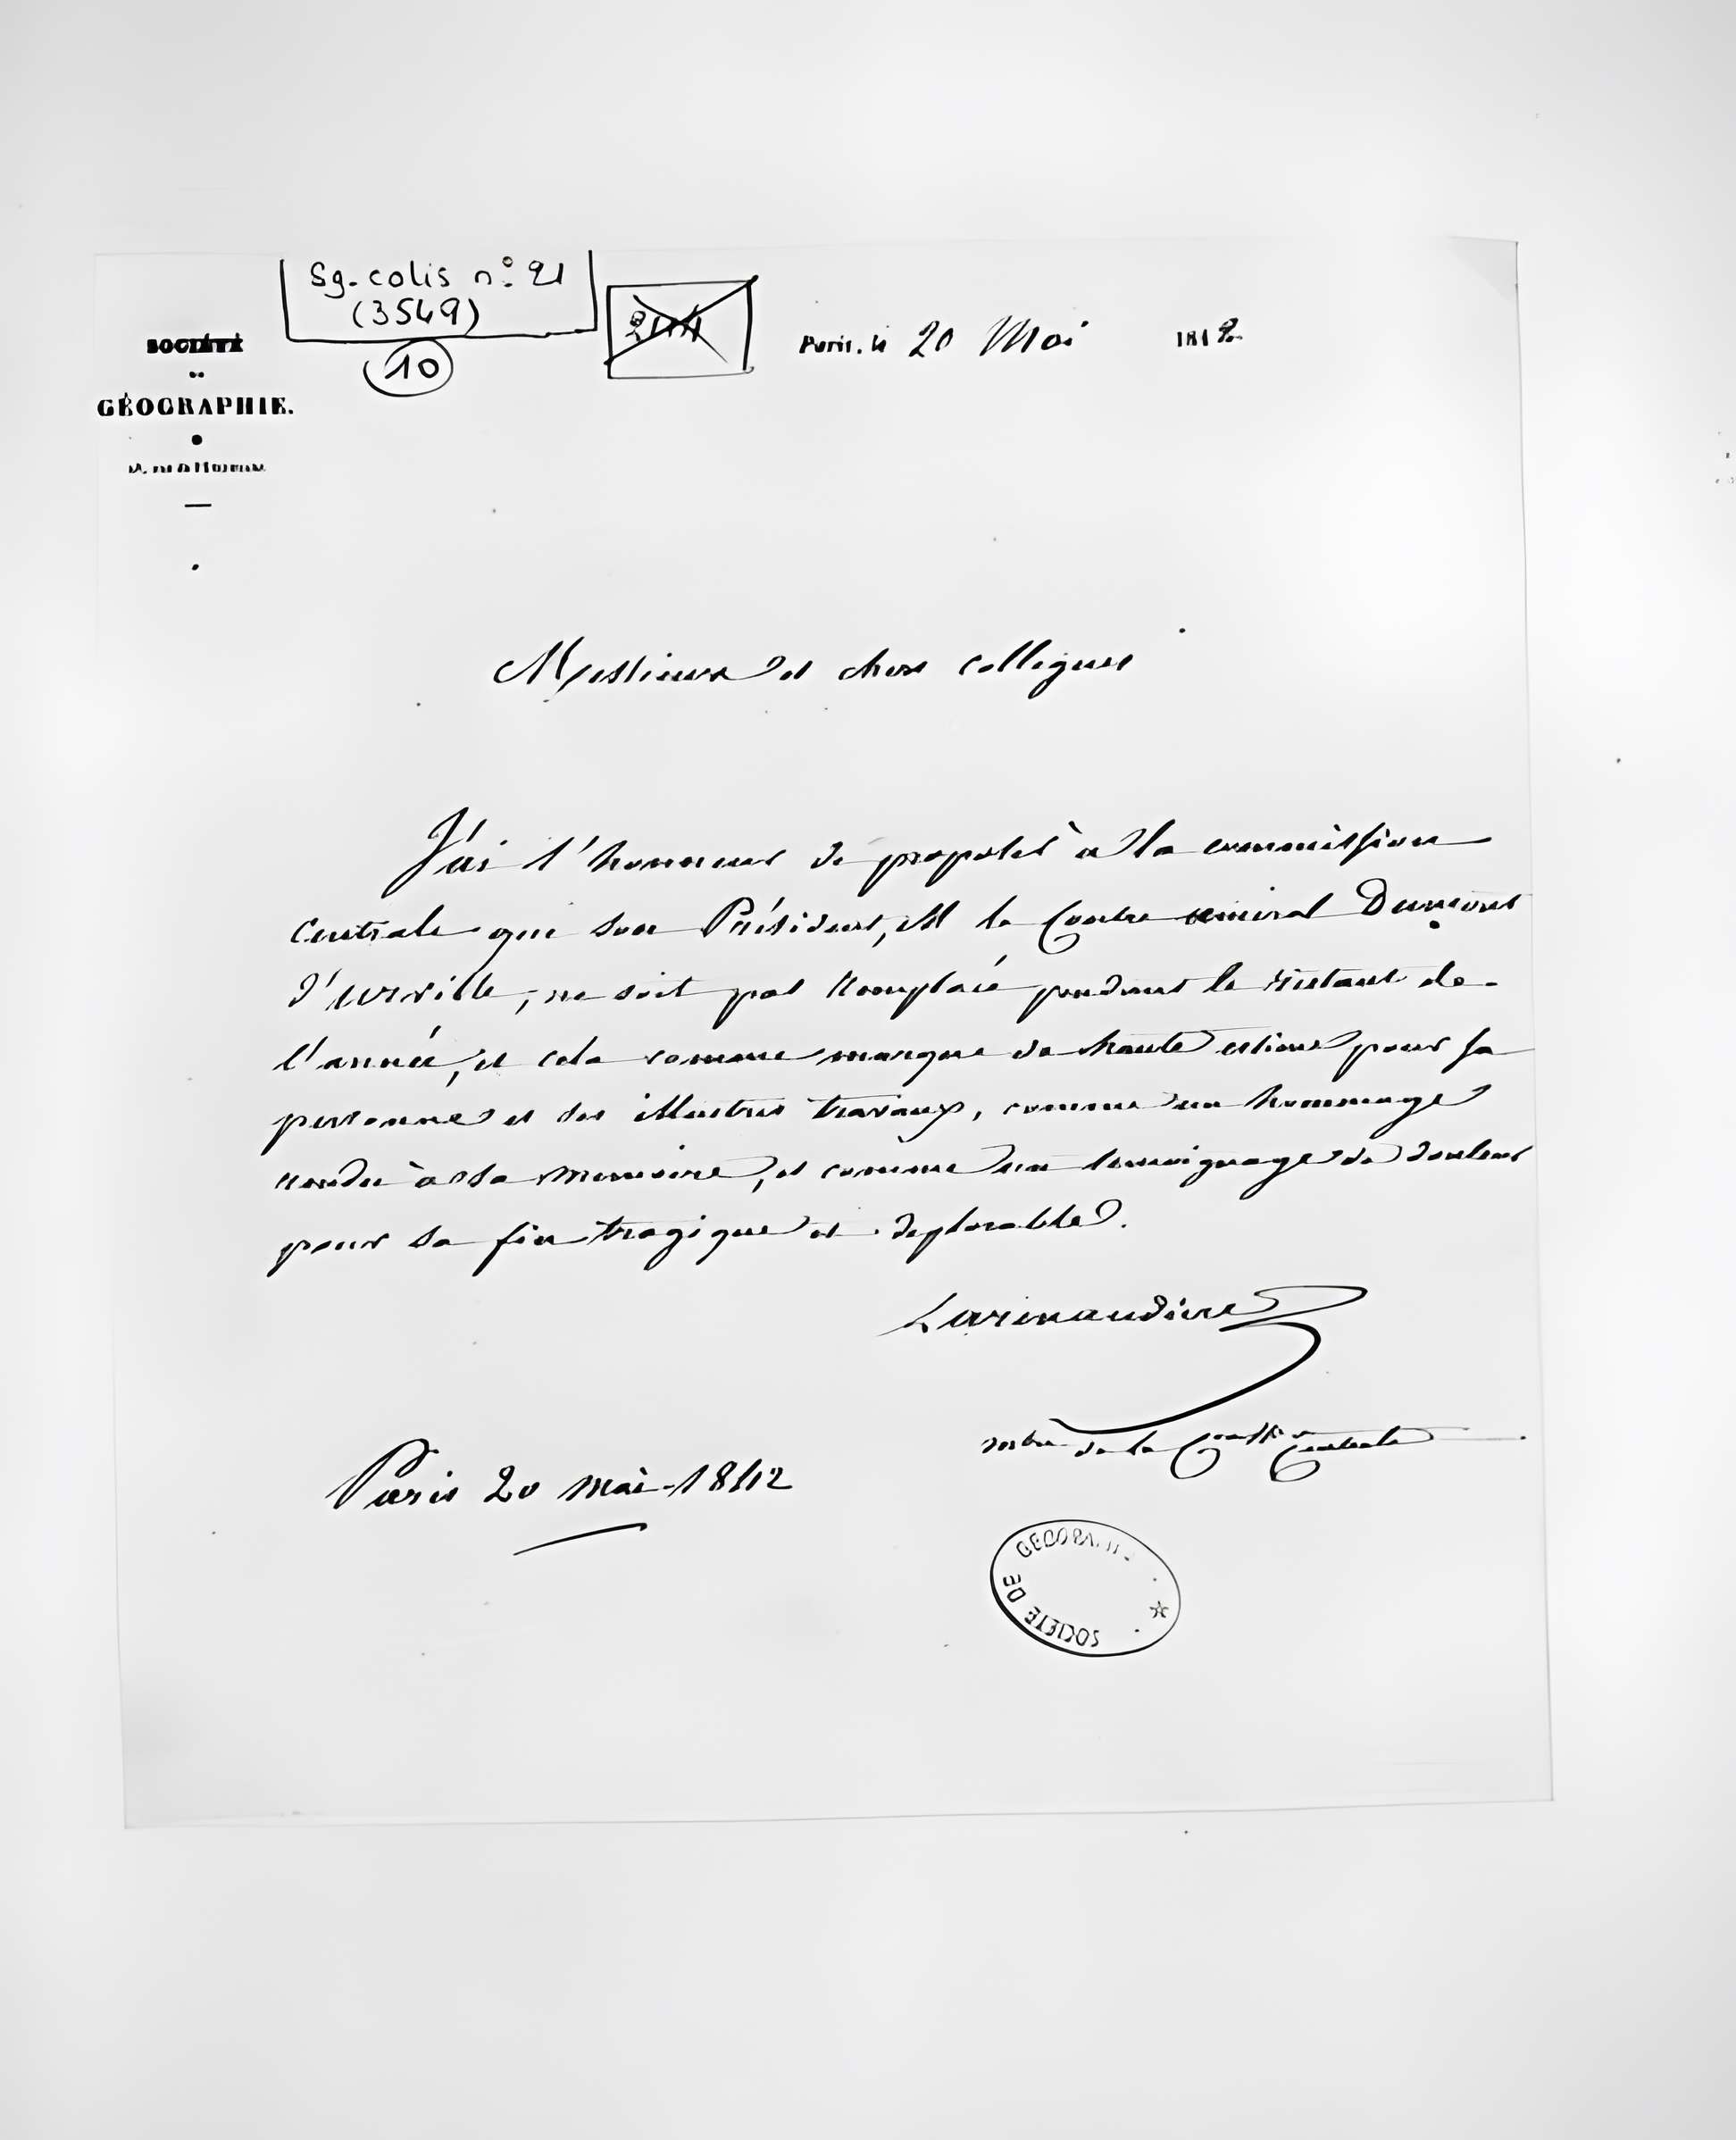 Sg. colis n° 21
(3549)
10
SOCIÉTÉ
DE
GÉOGRAPHIE.
Paris, le 20 Mai 1842
Messieurs et chers collegues
J'ai l'honneur de proposer à la commission
Centrale que son Président, M le Contre amiral Dumont
d'urville, ne soit pas remplacé pendant le restant de
l'année, et cela comme marque de haute estime pour sa
personne et ses illustres travaux, comme un hommage
rendu à sa memoire, et comme un temoignage de douleur
pour sa fin tragique et deplorable.
Larenaudière
de la Comson Centrale
Paris 20 mai 1842
SOCIETE DE GEOGRAPHIE